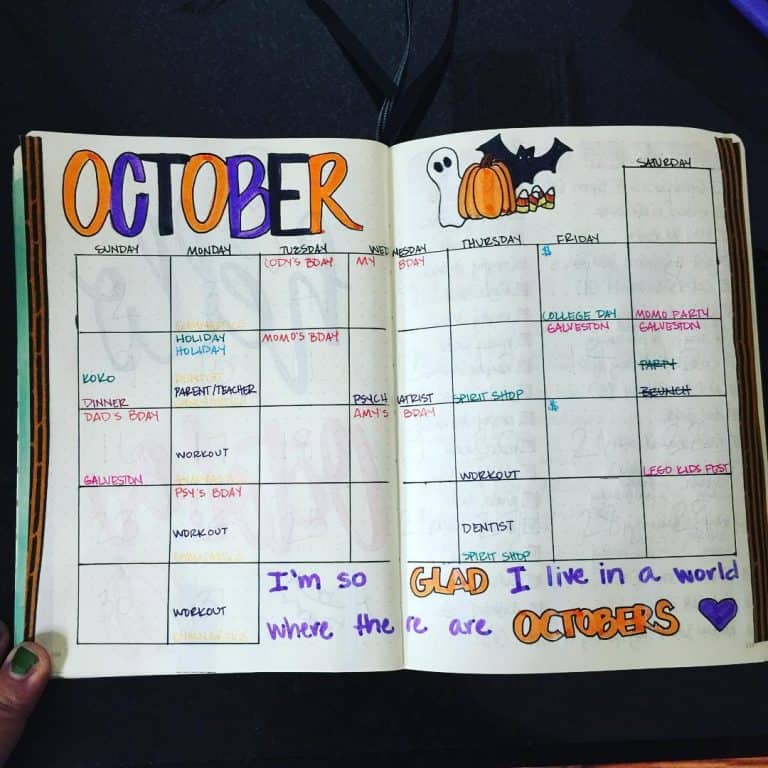 OCTOBER
SATURDAY
SUNDAY MONDAY TUESDAY WEDNESDAY THURSDAY FRIDAY
CODY'S BDAY MY BDAY $
COLLEGE DAY MOMO PARTY
HOLIDAY MOMO'S BDAY GALVESTON GALVESTON
HOLIDAY
PARTY
KOKO DENTIST
PARENT/TEACHER SPIRIT SHOP BRUNCH
DINNER PSYCHIATRIST
DAD'S BDAY AMY'S BDAY $
WORKOUT
GALVESTON WORKOUT LEGO KIDS FEST
PSY'S BDAY
WORKOUT DENTIST
SPIRIT SHOP
I'm so GLAD I live in a world
WORKOUT where there are OCTOBERS